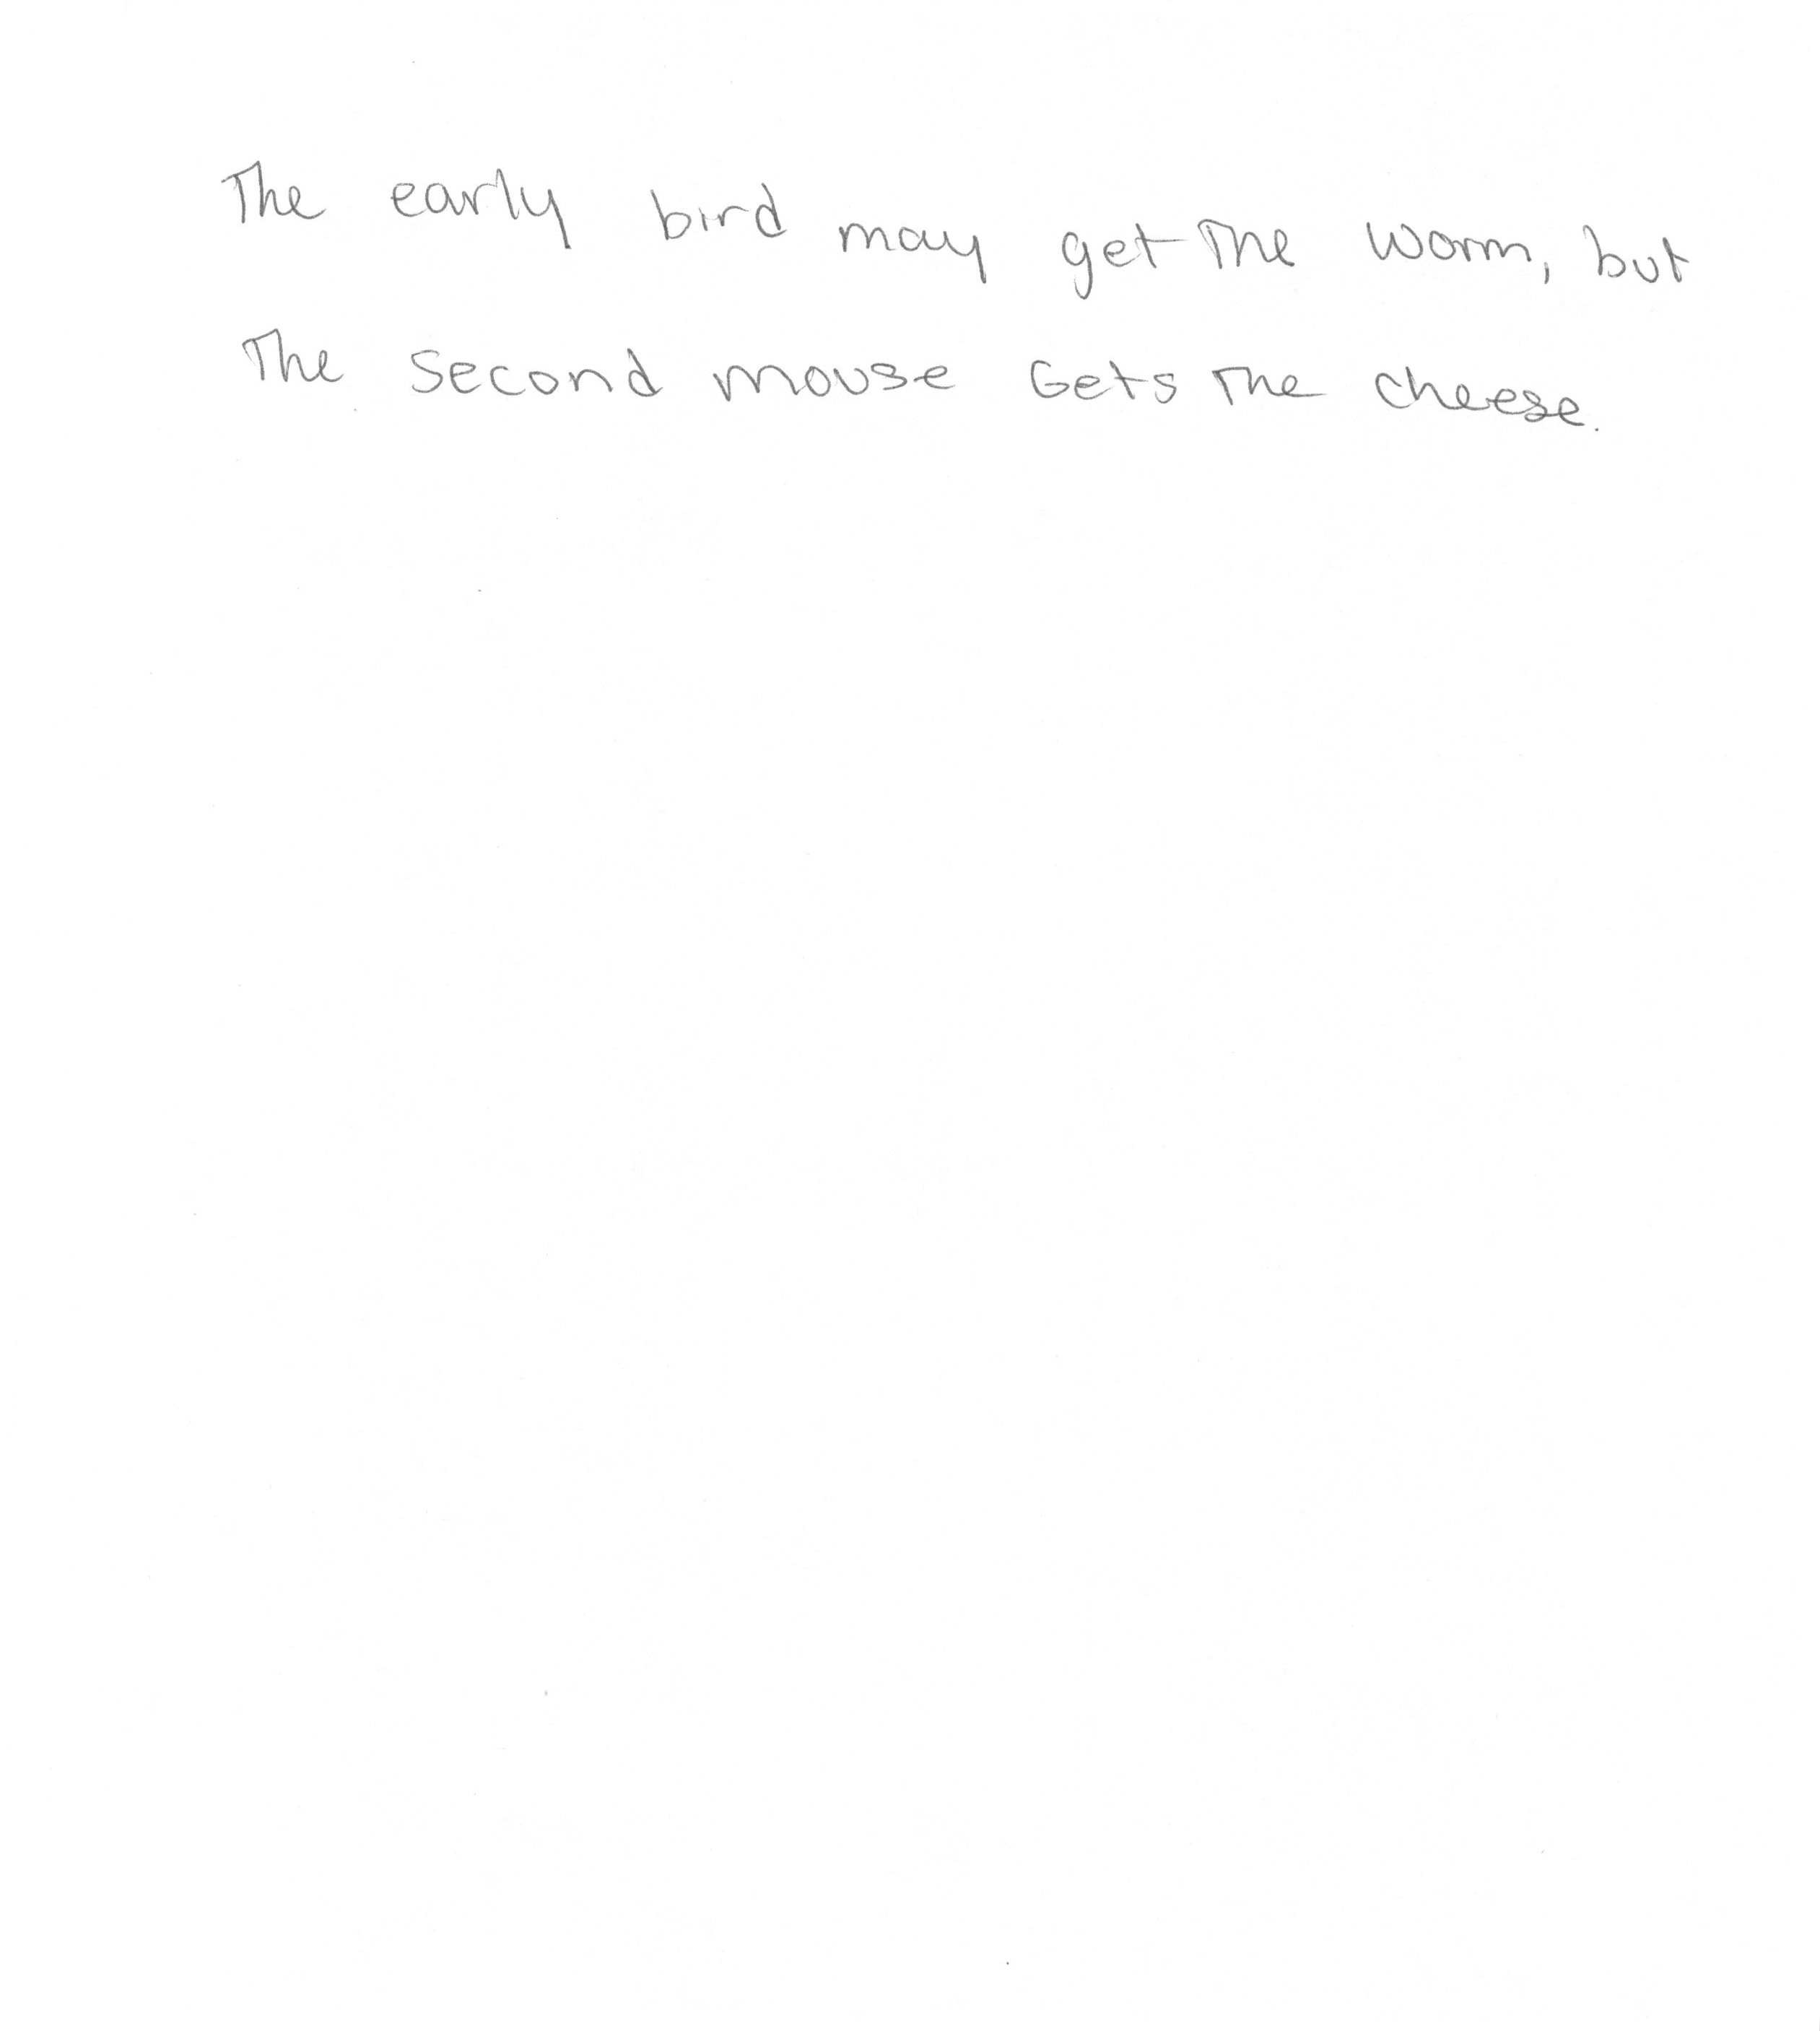 The early bird may get the worm, but
The second mouse Gets the cheese.